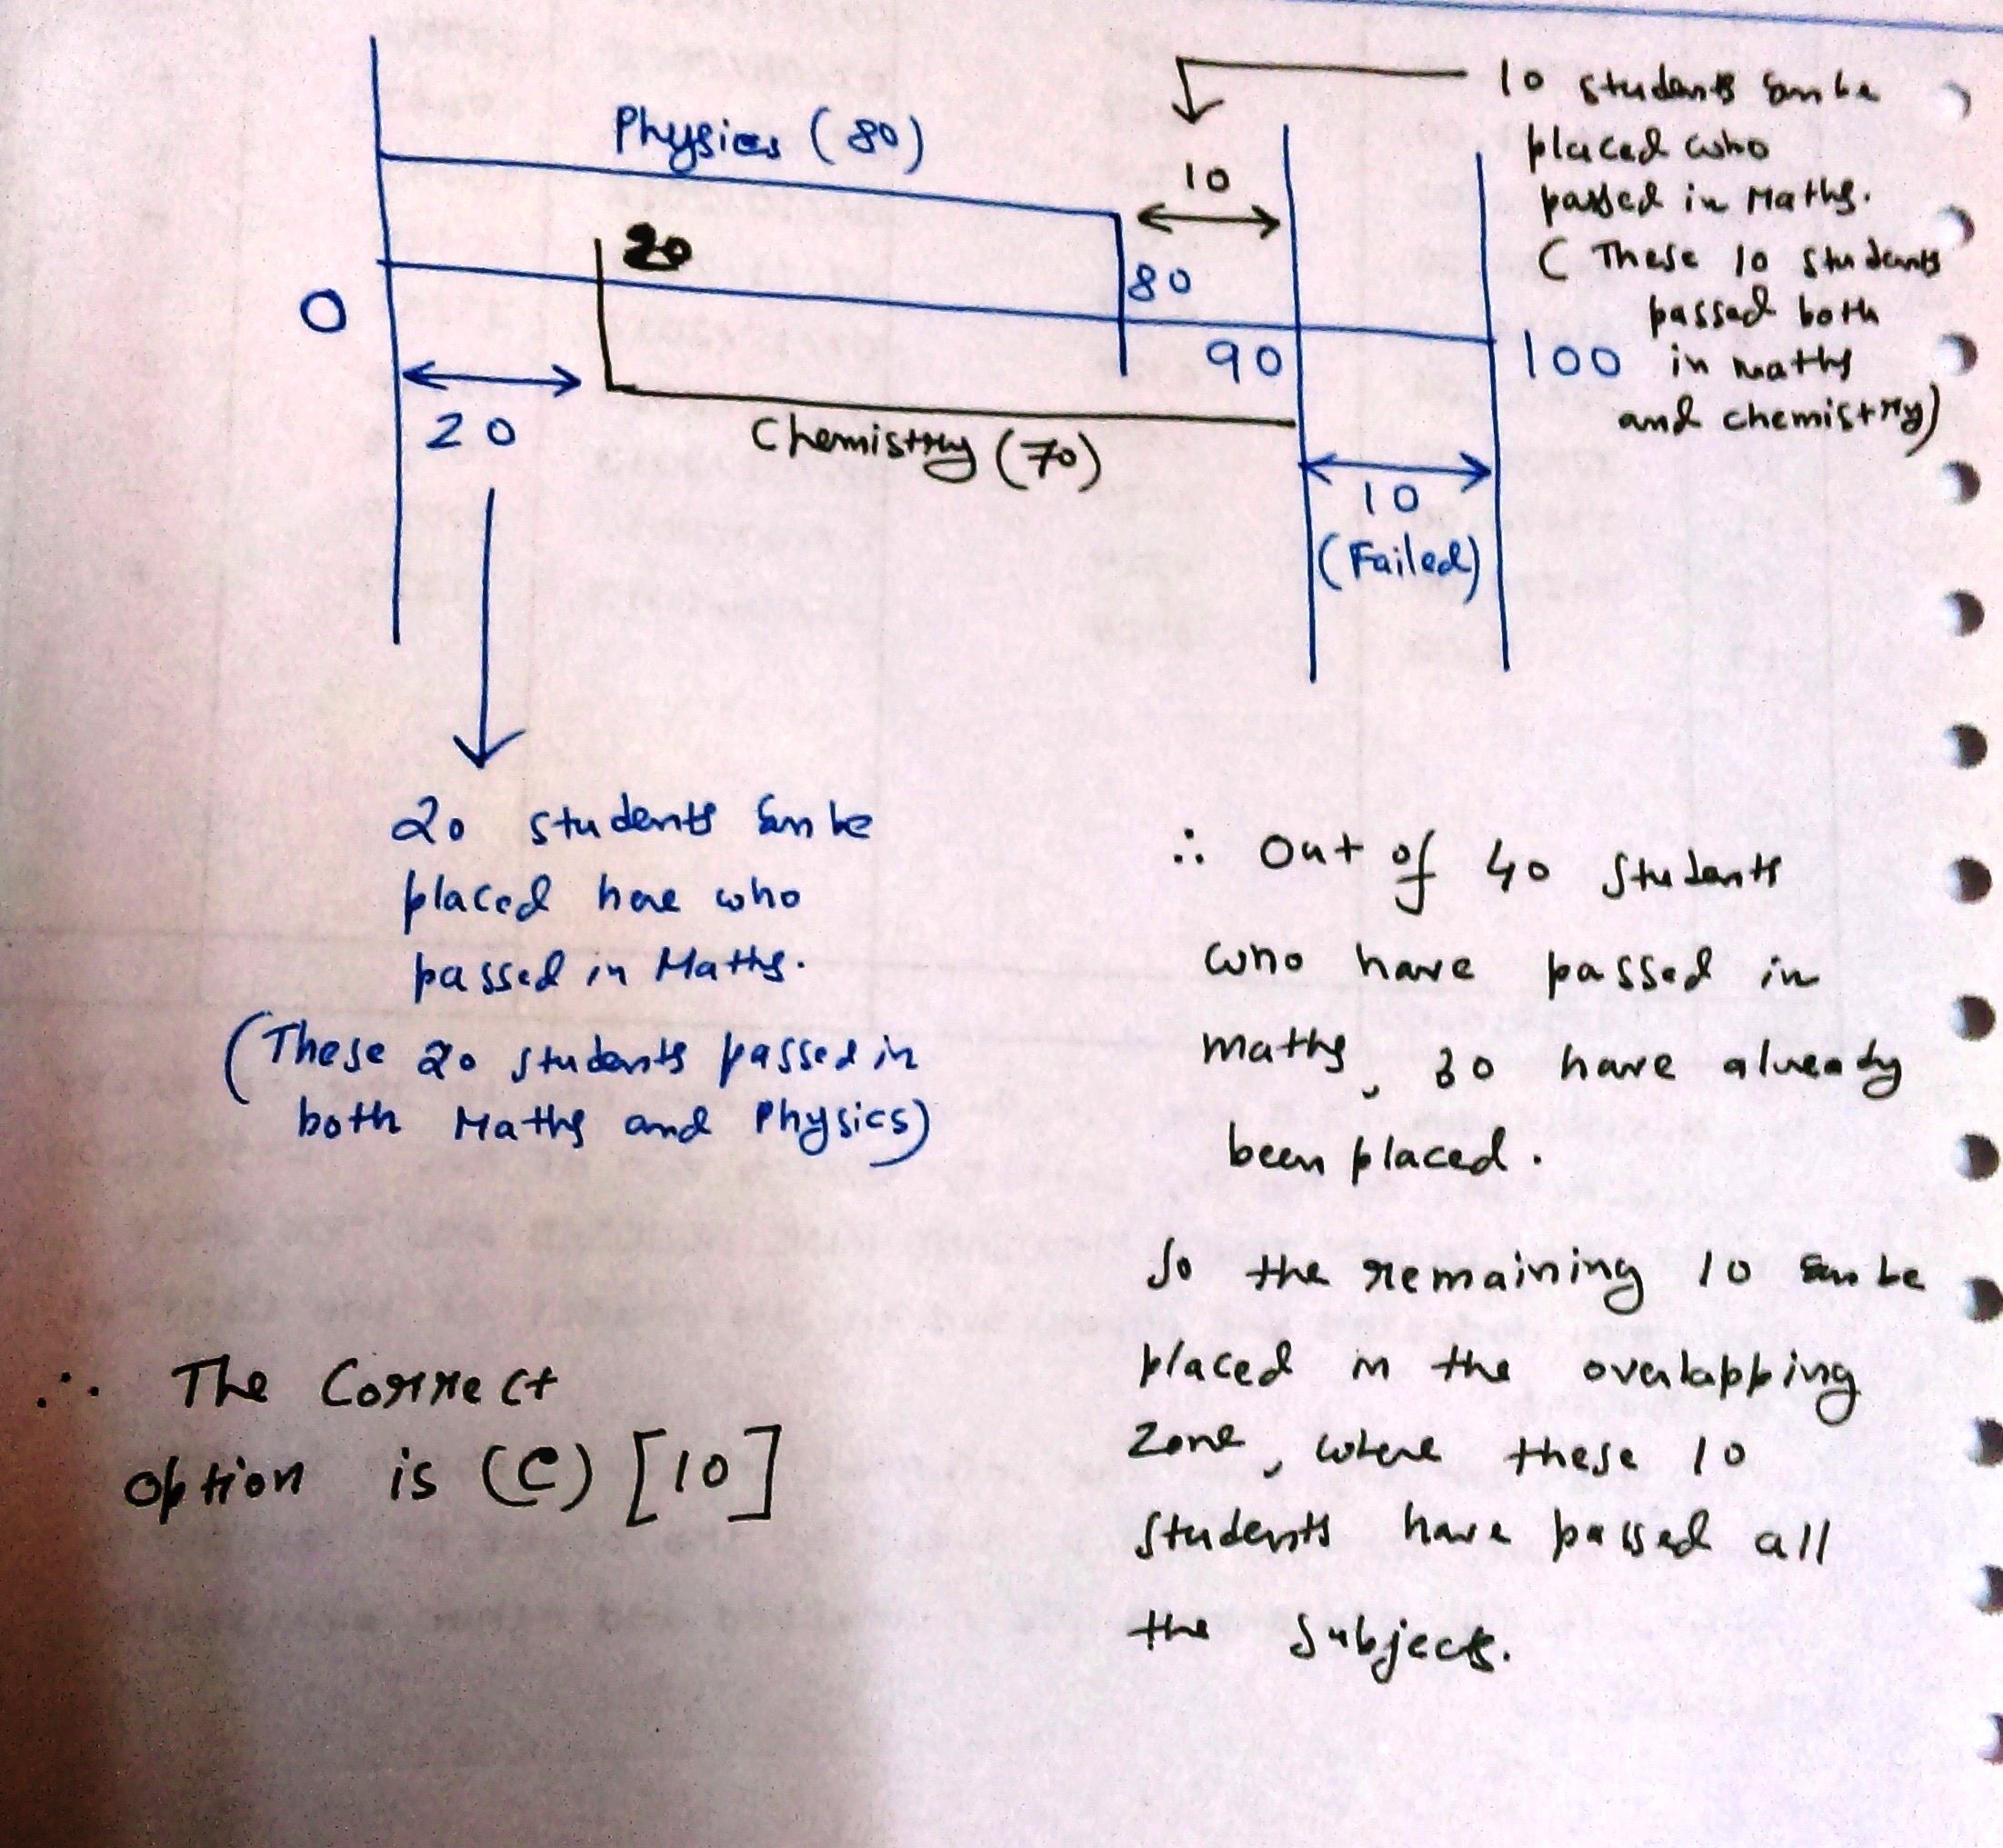 Physics (80)
10
20
80
0
90
100
20
Chemistry (70)
10
(Failed)
10 students can be
placed who
passed in Maths.
( These 10 students
passed both
in maths
and chemistry)
20 students can be
placed here who
passed in Maths.
(These 20 students passed in
both Maths and Physics)
∴ Out of 40 students
who have passed in
maths, 30 have already
been placed.
So the remaining 10 can be
placed in the overlapping
zone, where these 10
students have passed all
the subjects.
∴ The Correct
option is (C) [10]